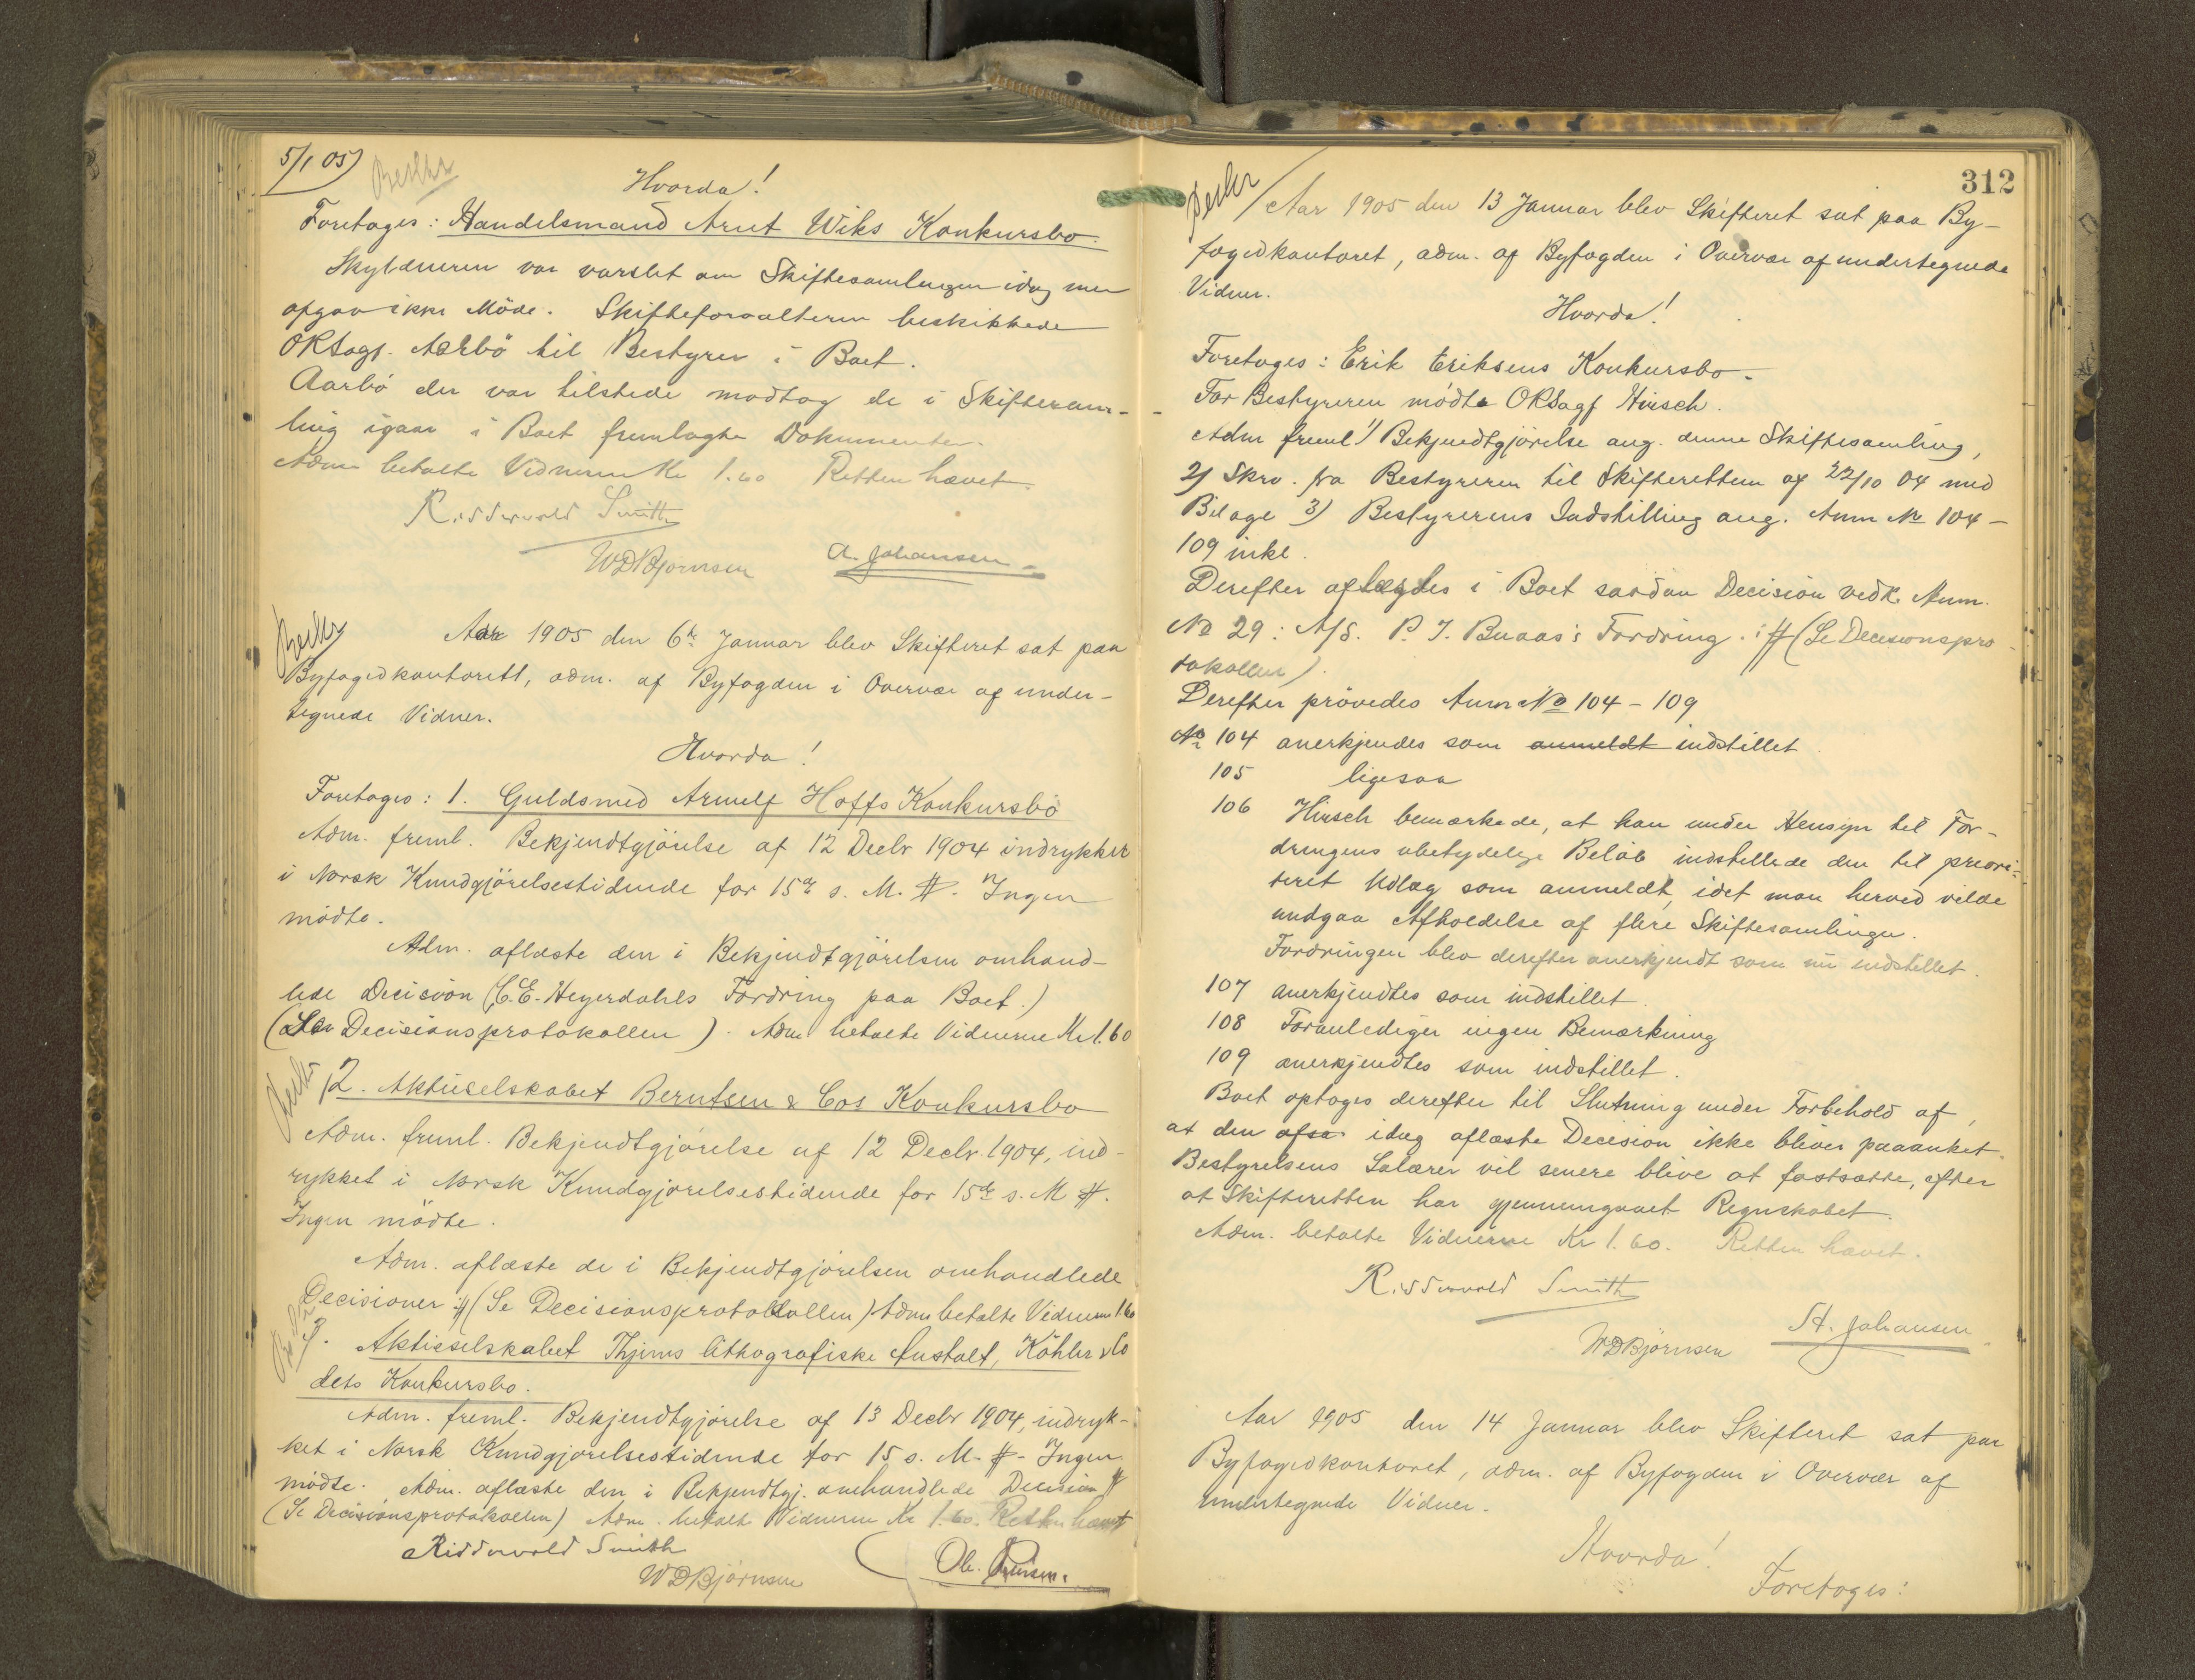 5/1 05)
Beskr
Hvorda!
Foretages: Handelsmand Arnt Wiks Konkursbo.
Skyldneren var varslet om Skiftesamlingen idag men
afgav ikke Møde. Skifteforvalteren beskikkede
ORSagf. Aarbö til Bestyrer i Boet.
Aarbö der var tilstede modtog de i Skiftesam-
ling igaar i Boet fremlagte Dokumenter.
Adm betalte Vidnerne Kr 1.60 Retten hævet.
Riddervold Smith
WDBjørnsen A. Johansen
Beskr
Aar 1905 den 6te Januar blev Skifteret sat paa
Byfogedkontoret, adm. af Byfogden i Overvær af under-
tegnede Vidner.
Hvorda!
Foretages: 1. Guldsmed Arnulf Hoffs Konkursbo
Adm. freml. Bekjendtgjörelse af 12 Decbr 1904 indrykket
i Norsk Kundgjörelsestidende for 15de s. M. #. Ingen
mödte.
Adm. aflæste den i Bekjendtgjörelsen omhand-
lede Decision (C.E. Heyerdahls Fordring paa Boet.)
(Se Decisionsprotokollen). Adm betalte Vidnerne Kr 1.60
Beskr
2. Aktieselskabet Berntsen & Cos Konkursbo
Adm. freml. Bekjendtgjörelse af 12 Decbr. 1904, ind-
rykket i Norsk Kundgjörelsestidende for 15de s. M #.
Ingen mödte.
Adm. aflæste de i Bekjendtgjörelsen omhandlede
Decisioner # (Se Decisionsprotokollen) Adm betalte Vidnerne 1.60
Beskr
3. Aktieselskabet Thjems lithografiske Anstalt, Köhler & Co
dets Konkursbo.
Adm. freml. Bekjendtgjörelse af 13 Decbr 1904, indryk-
ket i Norsk Kundgjörelsestidende for 15 s. M. #- Ingen
mödte. Adm. aflæste den i Bekjendtgj. omhandlede Decision #
(Se Decisionsprotokollen) Adm. betalte Vidnerne Kr 1.60. Retten hævet
Riddervold Smith
WDBjørnsen Ole
312
Beskr
Aar 1905 den 13 Januar blev Skifteret sat paa By-
fogedkontoret, adm. af Byfogden i Overvær af undertegnede
Vidner.
Hvorda!
Foretages: Erik Eriksens Konkursbo.
For Bestyreren mödte ORSagf Hirsch.
Adm freml 1) Bekjendtgjörelse ang. denne Skiftesamling,
2) Skrv. fra Bestyreren til Skifteretten af 22/10 04 med
Bilage 3) Bestyrerens Indstilling ang. Anm No 104-
109 inkl.
Derefter aflagdes i Boet saadan Decision vedk. Anm.
No 29: A/S. P. J. Buaas's Fordring. :# (Se Decisionspro-
tokollen).
Derefter prövedes Anm No 104 - 109
No 104 anerkjendes som anmeldt indstillet
105 ligesaa
106 Hirsch bemærkede, at han under Hensyn til For-
dringens ubetydelige Belöb indstillede den til priori-
teret Udlæg som anmeldt, idet man herved vilde
undgaa Afholdelse af flere Skiftesamlinger.
Fordringen blev derefter anerkjendt som nu indstillet.
107 anerkjendtes som indstillet.
108 Foranlediger ingen Bemærkning
109 anerkjendtes som indstillet.
Boet optoges derefter til Slutning under Forbehold af,
at den afsa idag aflæste Decision ikke bliver paaanket.
Bestyrelsens Salærer vil senere blive at fastsætte, efter
at Skifteretten har gjennemgaaet Regnskabet.
Adm. betalte Vidnerne Kr 1.60. Retten hævet.
Riddervold Smith
WDBjørnsen A. Johansen
Aar 1905 den 14 Januar blev Skifteret sat paa
Byfogedkontoret, adm. af Byfogden i Overvær af
undertegnede Vidner.
Hvorda!
Foretages: